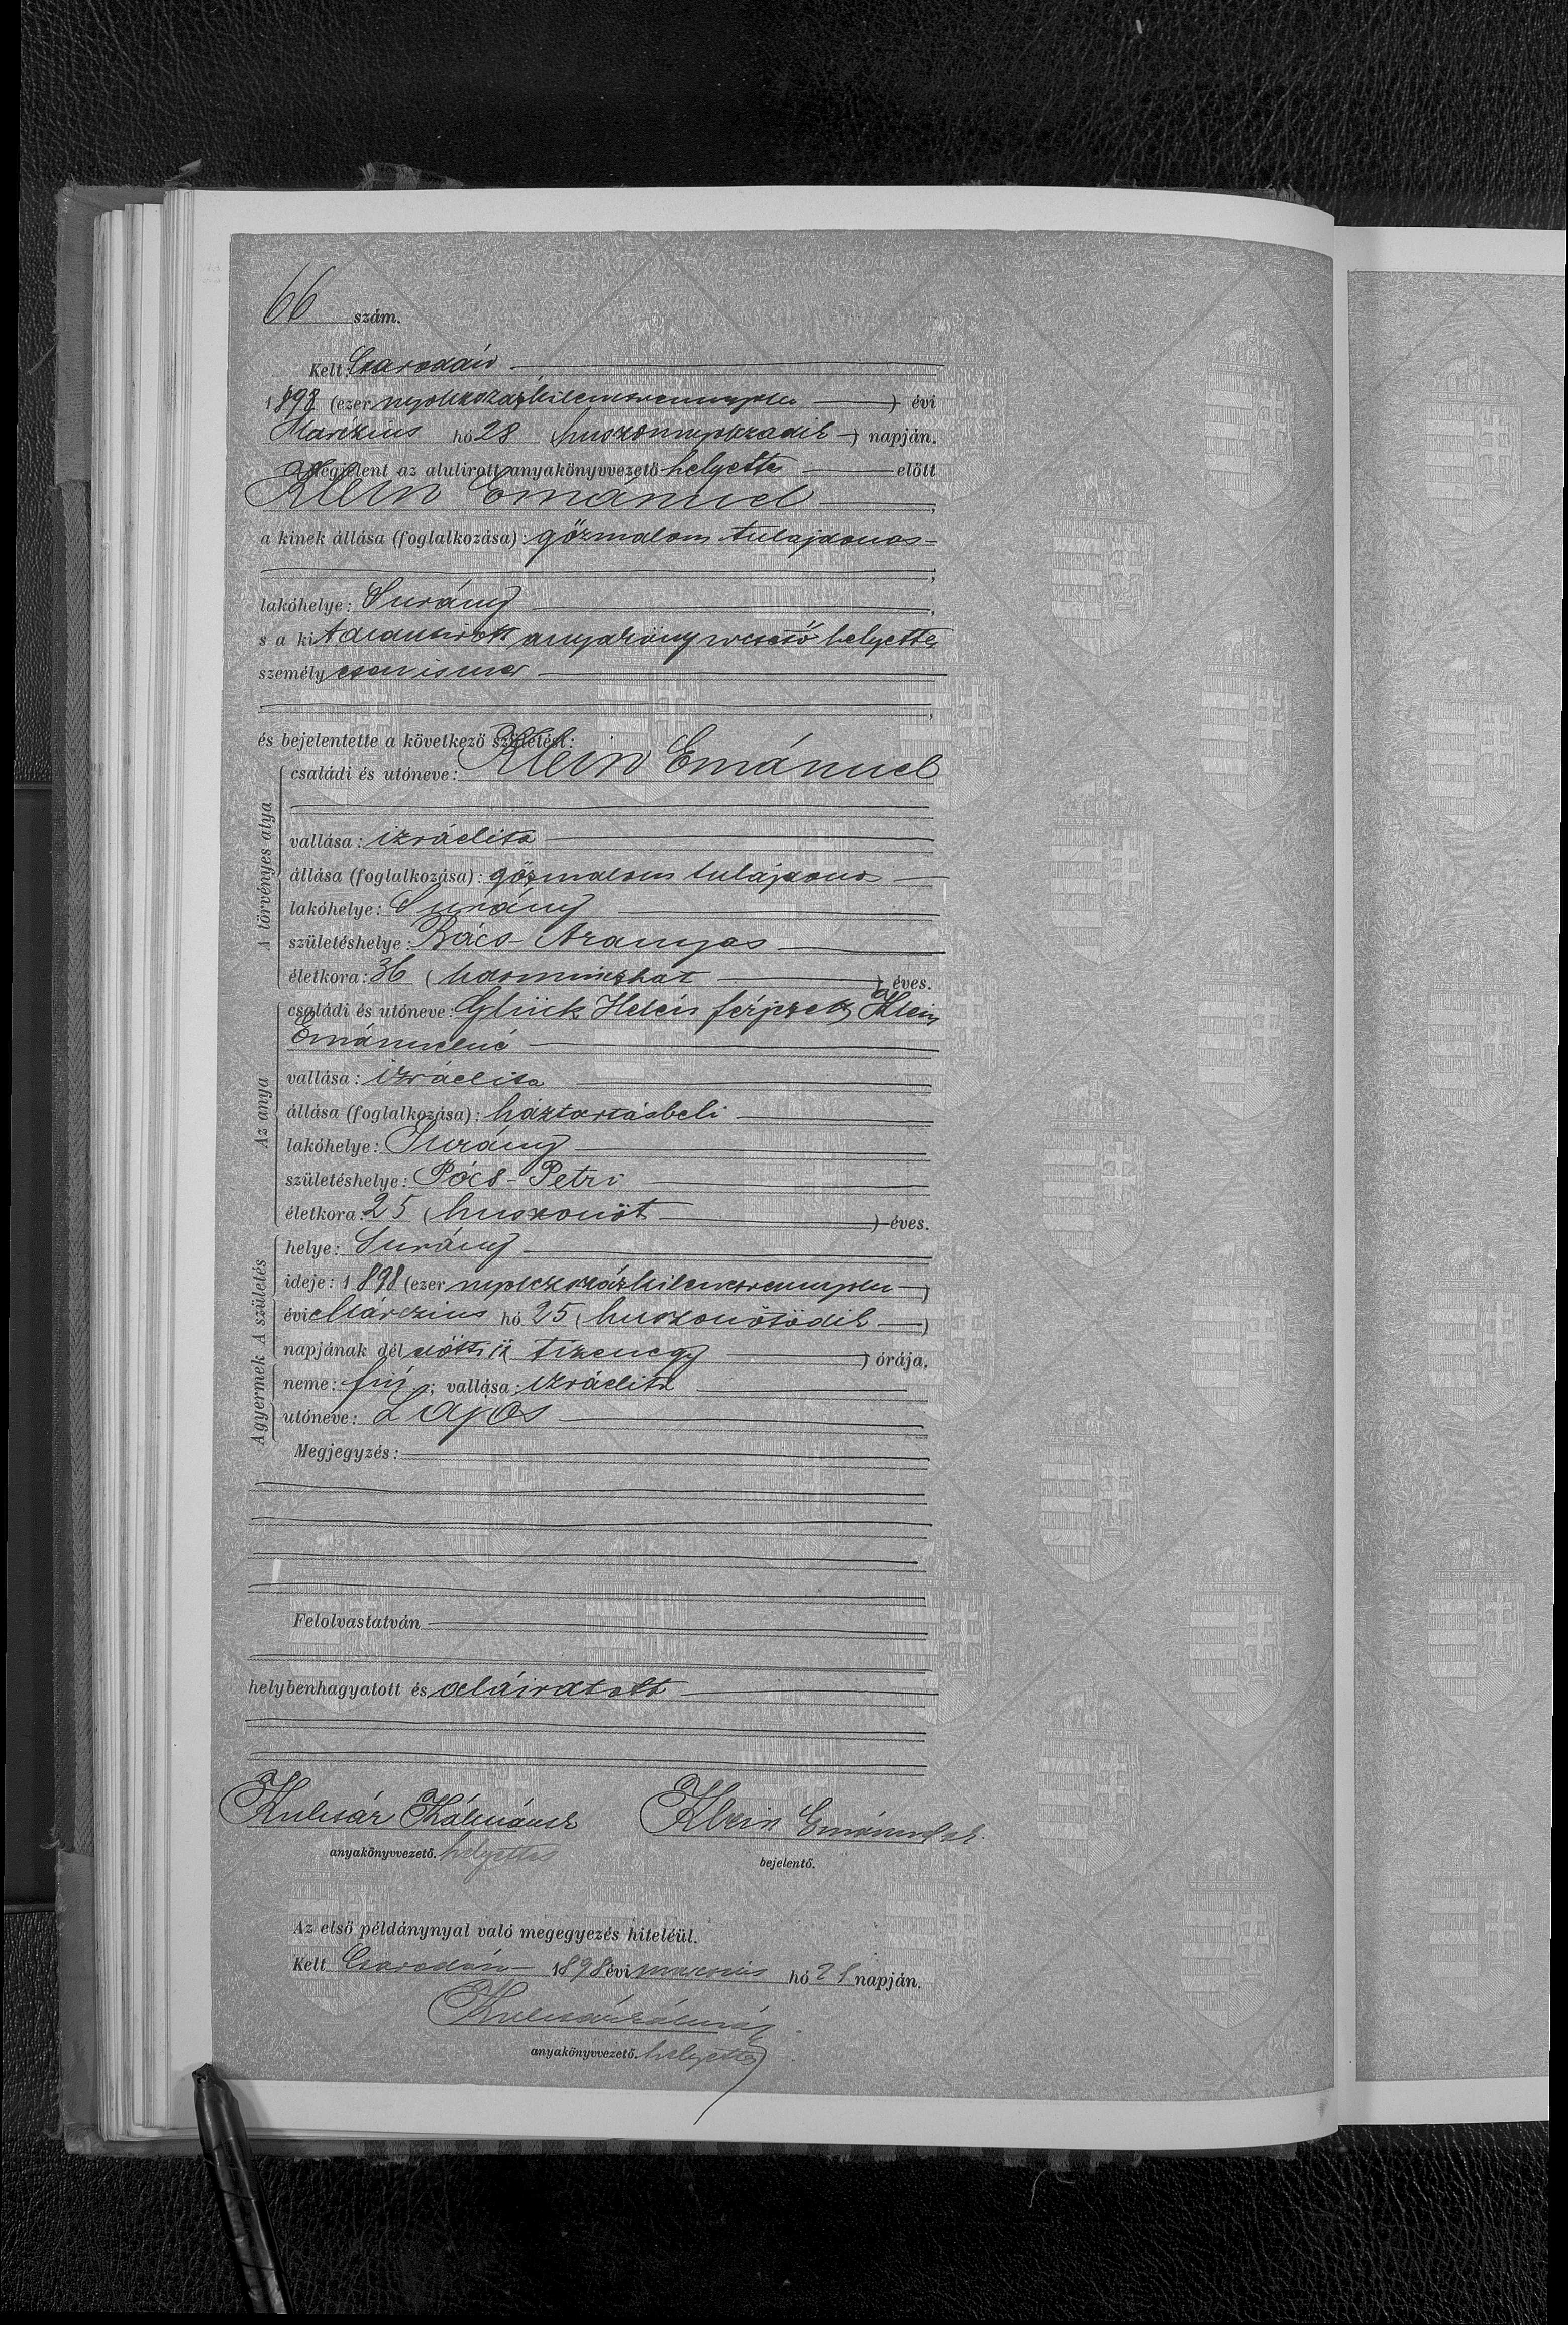 66 szám.
Kelt: Csarodán
1898 (ezer nyolczszázkilenczvennyolcz) évi
Márczius hó 28 (huszonnyolczadik) napján.
Megjelent az alulirott anyakönyvvezető helyettes előtt
Klein Emánuel,
a kinek állása (foglalkozása): gőzmalom tulajdonos
lakóhelye: Surány,
s a kit alantirott anyakönyvvezető helyettes
személyesen ismer
és bejelentette a következő születést:
A törvényes atya
családi és utóneve: Klein Emánuel
vallása: izráelita
állása (foglalkozása): gőzmalom tulájdonos
lakóhelye: Surány
születéshelye: Rács-Aranyos
életkora: 36 (harminczhat) éves.
Az anya
családi és utóneve: Glück Helén férjzett Klein
Emánuelné
vallása: izráelita
állása (foglalkozása): háztartásbeli
lakóhelye: Surány
születéshelye: Pócs-Petri
életkora: 25 (huszonöt) éves.
A gyermek A születés
helye: Surány
ideje: 1898 (ezer nyolczszázkilenczvennyolcz)
évi Márczius hó 25 (huszonötödik)
napjának dél előtti 11 tizenegy) órája.
neme: fiú; vallása: izráelita
utóneve: Lajos
Megjegyzés:
Felolvastatván
helybenhagyatott és aláiratott
Kulcsár Kálmán Klein Emánuel
anyakönyvvezető. helyettes bejelentő.
Az első példánynyal való megegyezés hiteléül.
Kelt Csarodán 1898 évi marczius hó 28 napján.
Kulcsár Kálmán
anyakönyvvezető. helyettes